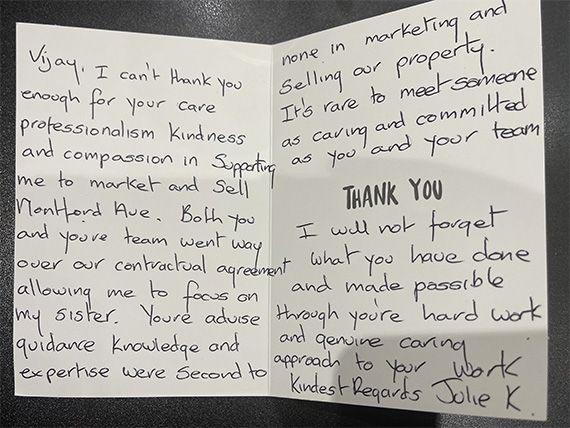 Vijay, I can't thank you
enough for your care
professionalism kindness
and compassion in Supporting
me to market and sell
Montford Ave. Both you
and youre team went way
over our contractual agreement
allowing me to focus on
my sister. Youre advise
guidance knowledge and
expertise were second to
none in marketing and
selling our property.
It's rare to meet someone
as caring and committed
as you and your team
THANK YOU
I will not forget
what you have done
and made possible
through you're hard work
and genuine caring
approach to your work
Kindest Regards Julie K.